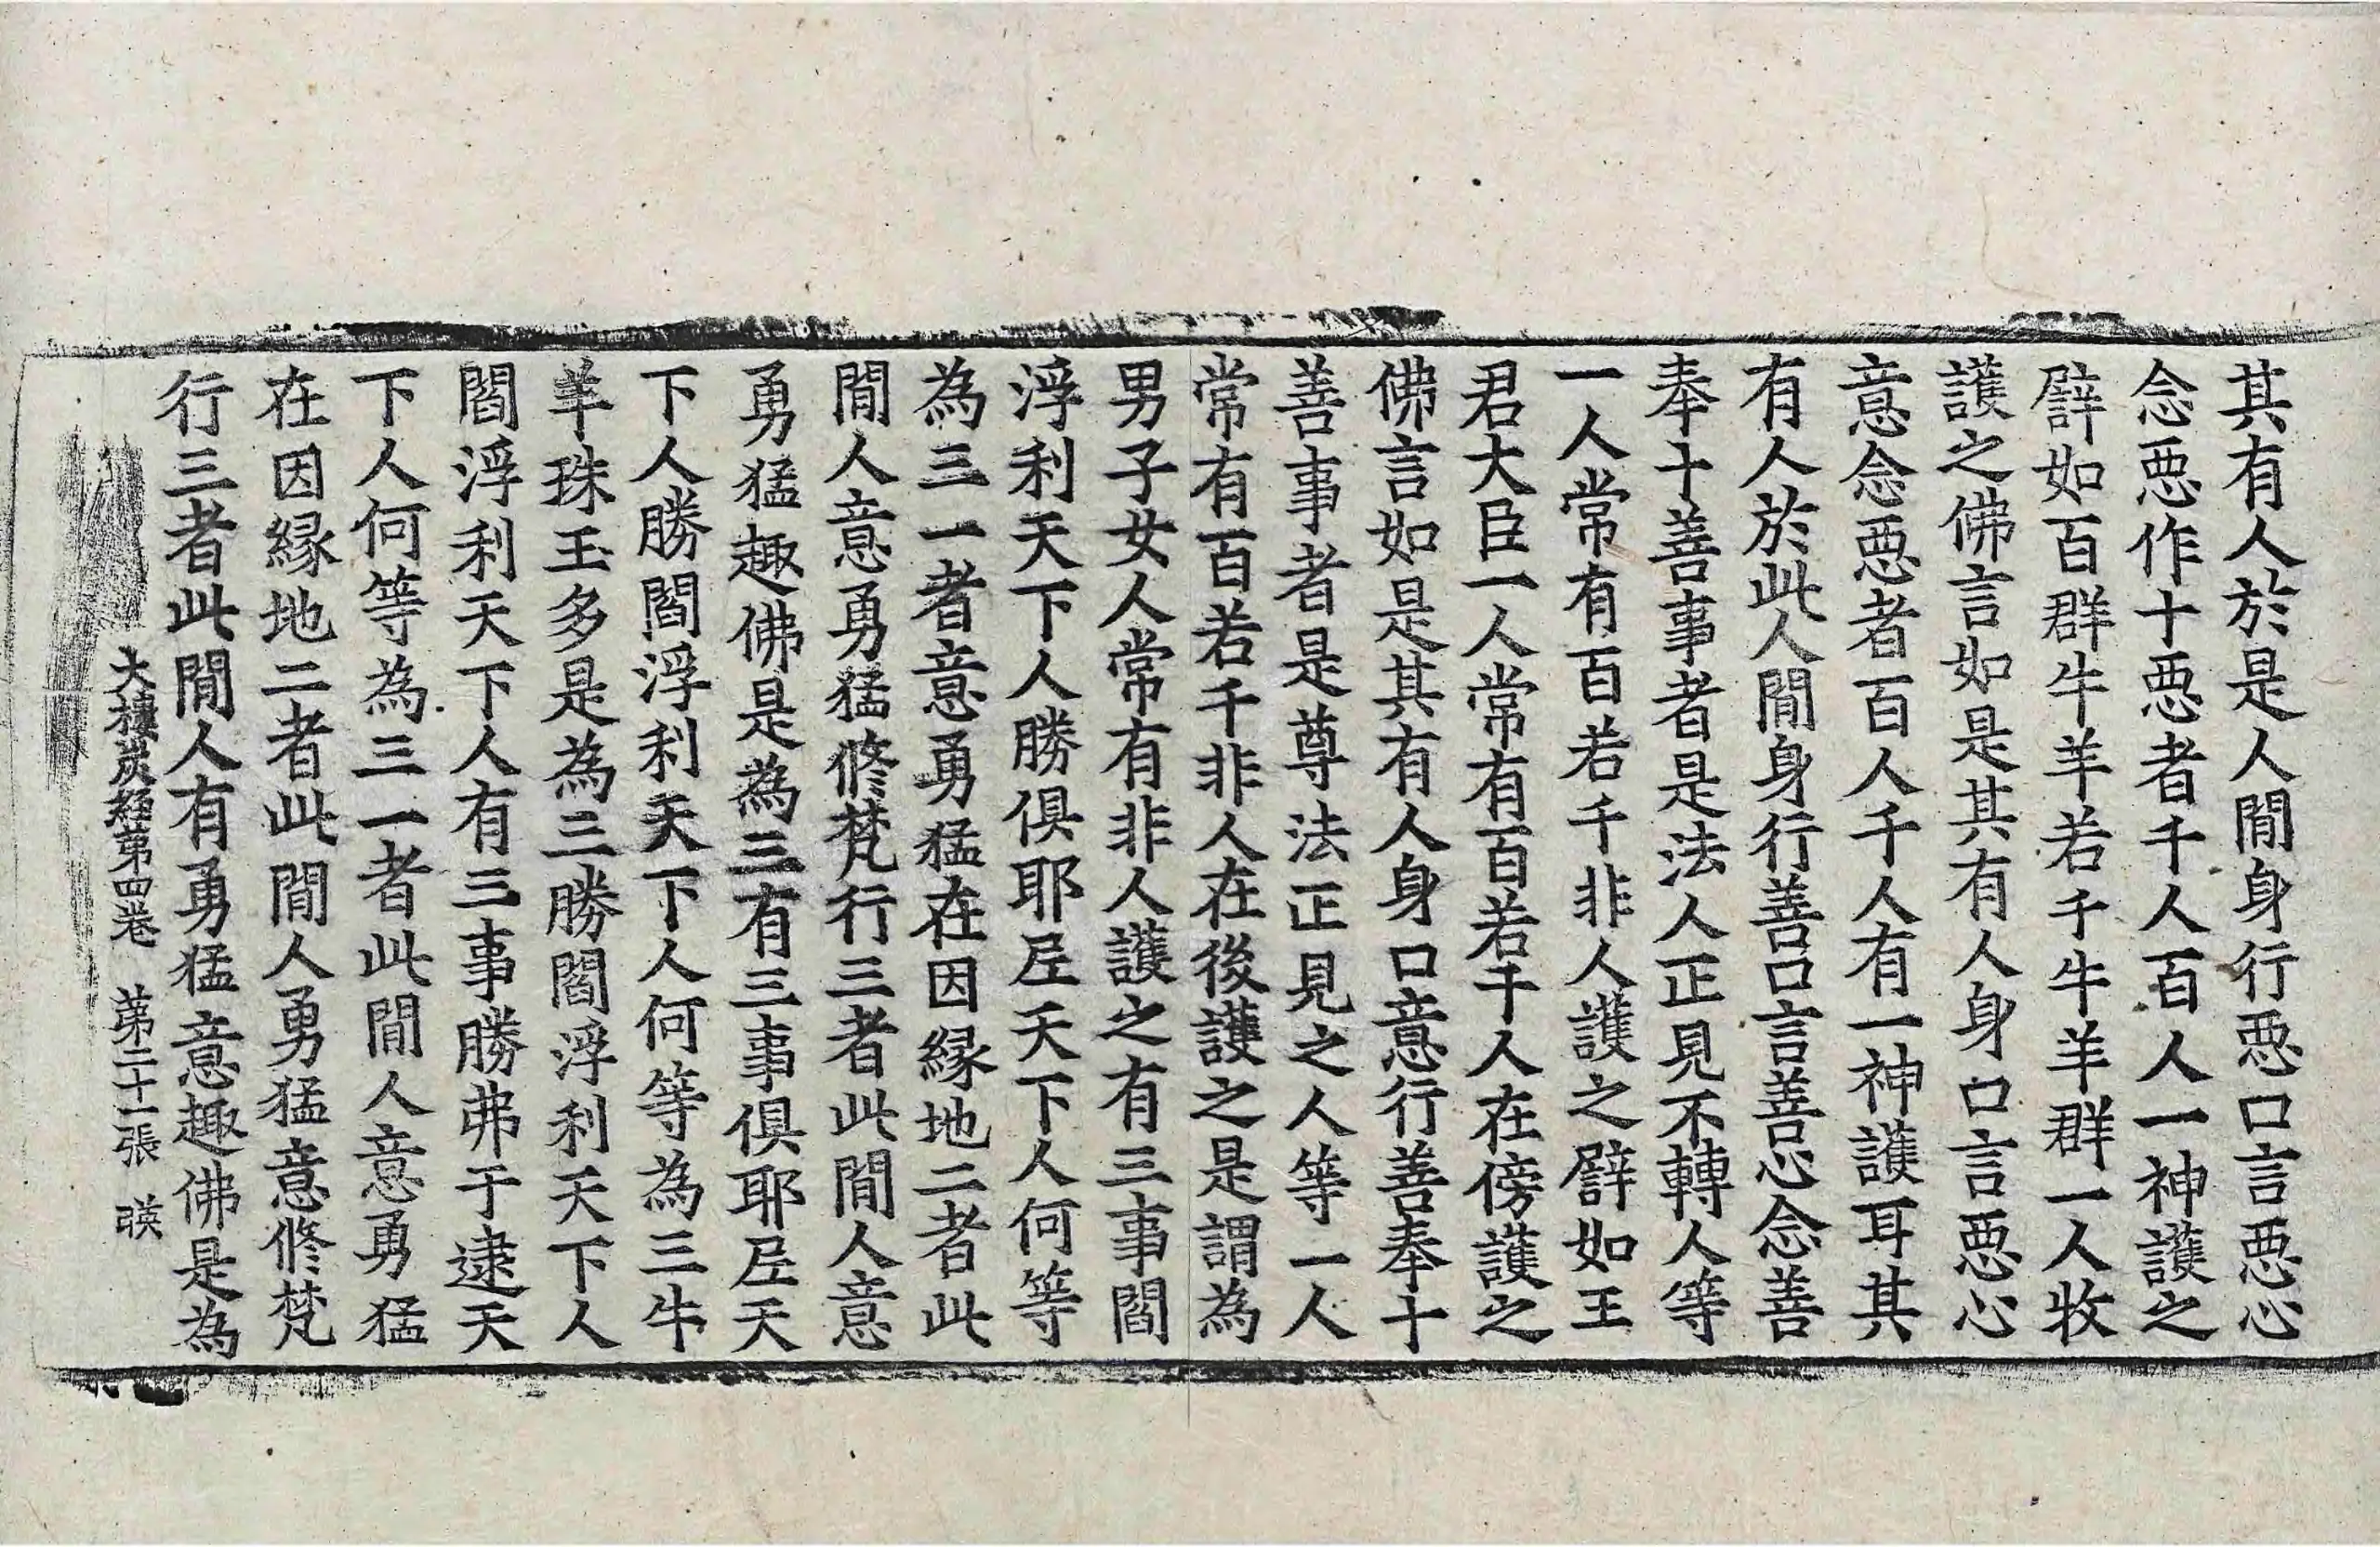 其有人於是人閒身行惡口言惡心
念惡作十惡者千人百人一神護之
譬如百群牛羊若千牛羊群一人牧
護之佛言如是其有人身口言惡心
意念惡者百人千人有一神護耳其
有人於此人閒身行善口言善心念善
奉十善事者是法人正見不轉人等
一人常有百若千非人護之譬如王
君大臣一人常有百若千人在傍護之
佛言如是其有人身口意行善奉十
善事者是尊法正見之人等一人
常有百若千非人在後護之是謂為
男子女人常有非人護之有三事閻
浮利天下人勝俱耶尼天下人何等
為三一者意勇猛在因緣地二者此
閒人意勇猛修梵行三者此閒人意
勇猛趣佛是為三有三事俱耶尼天
下人勝閻浮利天下人何等為三牛
羊珠玉多是為三勝閻浮利天下人
閻浮利天下人有三事勝弗于逮天
下人何等為三一者此閒人意勇猛
在因緣地二者此閒人勇猛意修梵
行三者此閒人有勇猛意趣佛是為
大樓炭經第四卷　第二十一張　暎